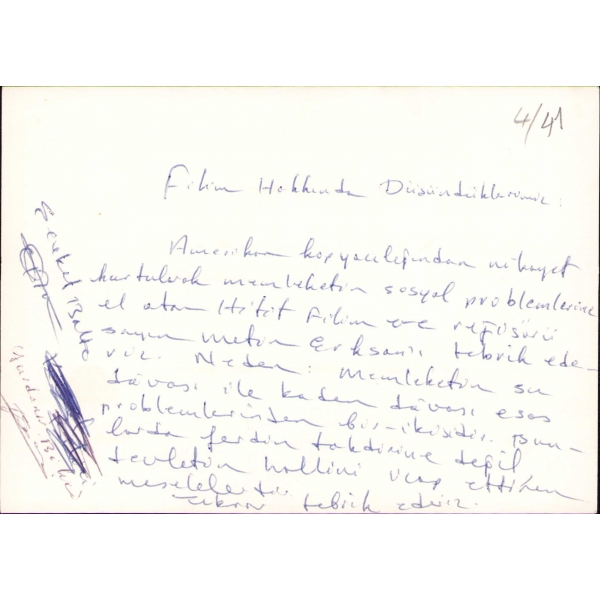 4/41
Filim Hakkında Düşündüklerimiz:
Amerikan kopyacılığından nihayet
kurtularak memleketin sosyal problemlerine
el atan Hitit Filim ve rejisörü
sayın Metin Erksan'ı tebrik ede-
riz. Neden: memleketin su
dâvası ile kadın dâvası esas
problemlerinden bir-ikisidir. Bun-
larda ferdin takdirine değil
devletin hallini icap ettiren
meselelerdir.
Tekrar tebrik ederiz.
Şevket Balta